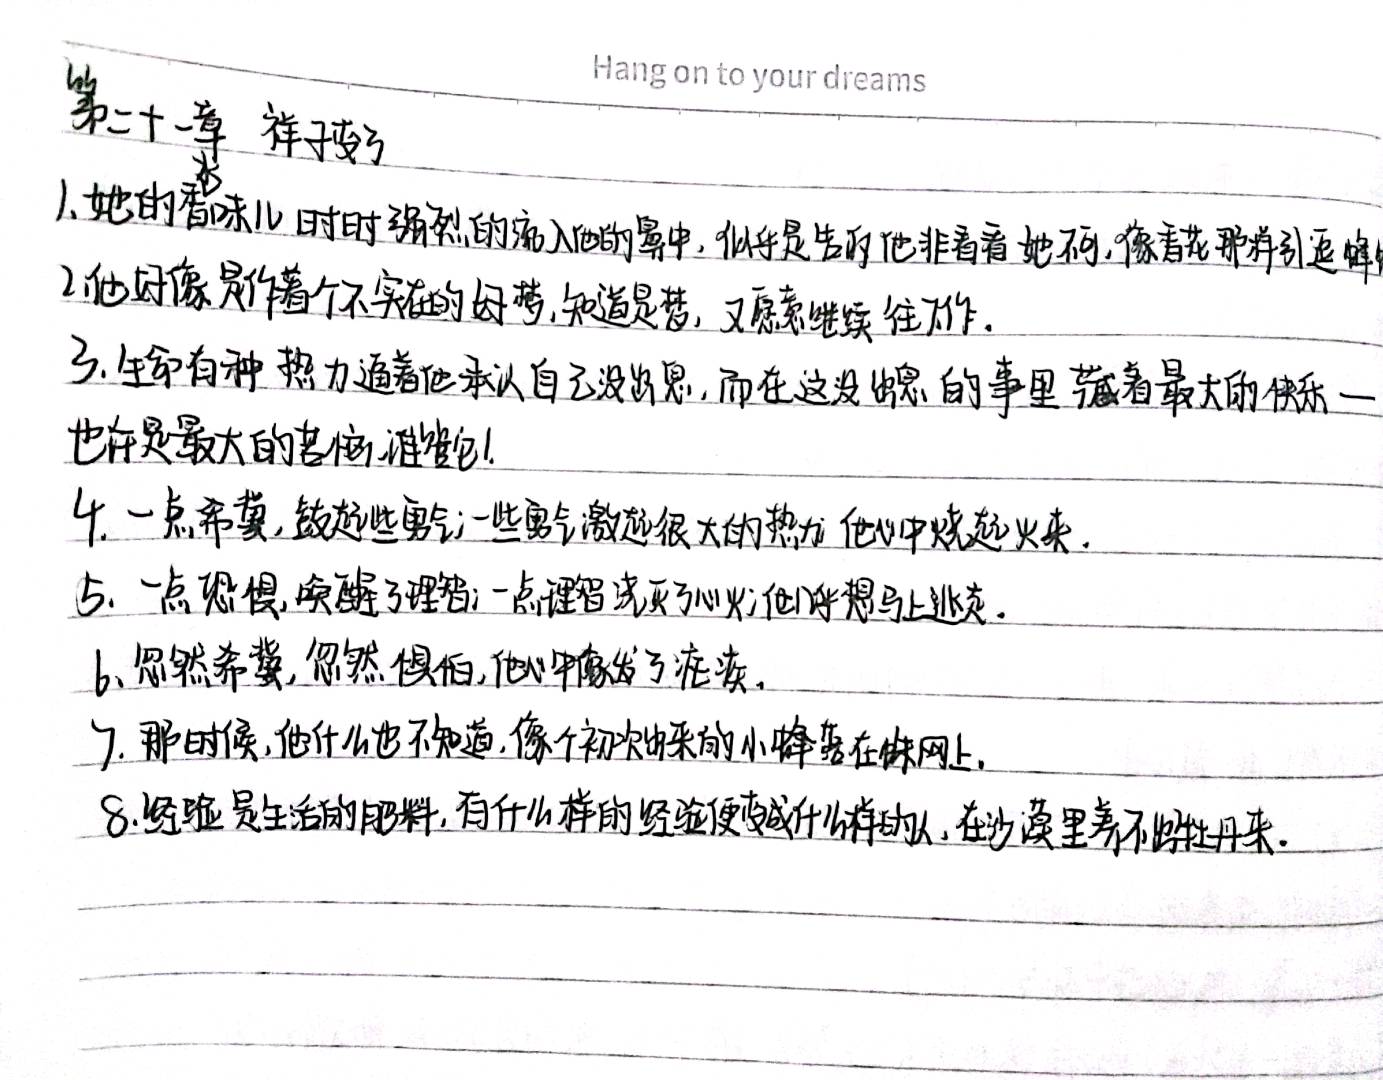 Hang on to your dreams
第二十一章 祥子变了
1、她的香水味儿时时强烈的流入他的鼻中,似乎是告诉他非看看她不可,像香花那样引逗蜂
2、他好像是作着个不实在的好梦,知道是梦,又愿意继续往下作.
3.生命有种热力逼着他承认自己没出息,而在这没出息的事里藏着最大的快乐一
也许是最大的苦恼,谁管它!
4.一点希冀,鼓起些勇气;一些勇气激起很大的热力;他心中烧起火来.
5.一点恐惧,唤醒了理智;一点理智浇灭了心火;他几乎想马上逃走.
6、忽然希冀,忽然惧怕,他心中像发了疟疾.
7.那时候,他什么也不知道,像个初次出来的小蜂落在蛛网上.
8.经验是生活的肥料,有什么样的经验便变成什么样的人,在沙漠里养不出牡丹来.